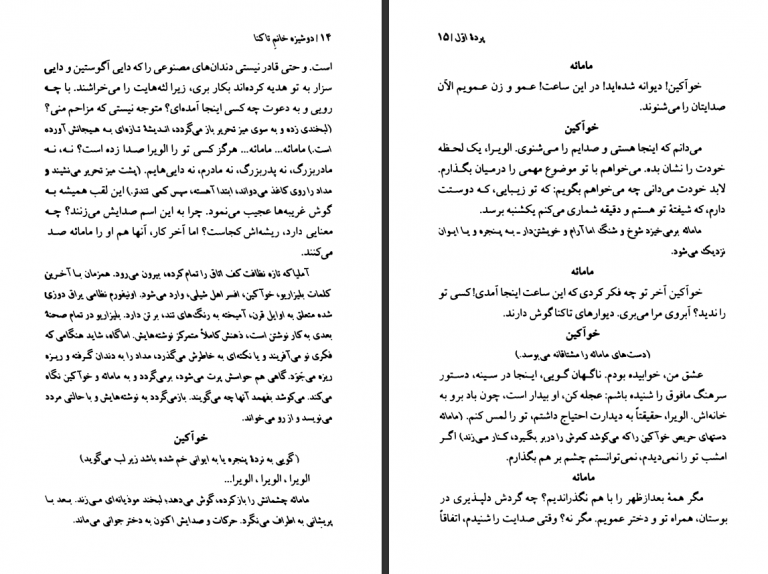 ۱۴ / دوشیزه خانم تاکنا
است. و حتی قادر نیستی دندان‌های مصنوعی را که دایی آگوستین و دایی
سزار به تو هدیه کرده‌اند بکار بری، زیرا لثه‌هایت را می‌خراشند. با چه
رویی و به دعوت چه کسی اینجا آمده‌ای؟ متوجه نیستی که مزاحم منی؟
(لبخندی زده و به سوی میز تحریر باز می‌گردد، اندیشهٔ تازه‌ای به هیجانش آورده
است.) مامائه... مامائه... هرگز کسی تو را الویرا صدا زده است؟ نه، نه
مادربزرگ، نه پدربزرگ، نه مادرم، نه دایی‌هایم. (پشت میز تحریر می‌نشیند و
مداد را روی کاغذ می‌دواند، ابتدا آهسته، سپس کمی تندتر.) این لقب همیشه به
گوش غریبه‌ها عجیب می‌نمود. چرا به این اسم صدایش می‌زنند؟ چه
معنایی دارد، ریشه‌اش کجاست؟ اما آخر کار، آنها هم او را مامائه صدا
می‌کنند.
آملیا که تازه نظافت کف اتاق را تمام کرده، بیرون می‌رود. همزمان با آخرین
کلمات بلیزاریو، خوآکین، افسر اهل شیلی، وارد می‌شود. اونیفورم نظامی یراق دوزی
شده متعلق به اوایل قرن، آمیخته به رنگ‌های تند، بر تن دارد. بلیزاریو در تمام صحنهٔ
بعدی به کار نوشتن است، ذهنش کاملاً متمرکز نوشته‌هایش. اما گاه، شاید هنگامی که
فکری نو می‌آفریند و یا نکته‌ای به خاطرش می‌گذرد، مداد را به دندان گرفته و ریزه
ریزه می‌جَوَد. گاهی هم حواسش پرت می‌شود، برمی‌گردد و به مامائه و خوآکین نگاه
می‌کند. می‌کوشد بفهمد آنها چه می‌گویند. بازمی‌گردد به نوشته‌هایش و با حالتی مردد
می‌نویسد و از رو می‌خواند.
خوآکین
(گویی به نردهٔ پنجره یا به ایوانی خم شده باشد زیر لب می‌گوید)
الویرا ، الویرا ، الویرا...
مامائه چشمانش را باز کرده، گوش می‌دهد؛ لبخند موذیانه‌ای می‌زند. بعد با
پریشانی به اطراف می‌نگرد. حرکات و صدایش اکنون به دختر جوانی می‌ماند.
پردهٔ اوّل / ۱۵
مامائه
خوآکین! دیوانه شده‌اید! در این ساعت! عمو و زن عمویم الآن
صدایتان را می‌شنوند.
خوآکین
می‌دانم که اینجا هستی و صدایم را می‌شنوی. الویرا، یک لحظه
خودت را نشان بده. می‌خواهم با تو موضوع مهمی را درمیان بگذارم.
لابد خودت می‌دانی چه می‌خواهم بگویم: که تو زیبایی، که دوستت
دارم، که شیفتهٔ تو هستم و دقیقه شماری می‌کنم یکشنبه برسد.
مامائه برمی‌خیزد شوخ و شنگ اما آرام و خویشتن‌دار ـ به پنجره و یا ایوان
نزدیک می‌شود.
مامائه
خوآکین آخر تو چه فکر کردی که این ساعت اینجا آمدی! کسی تو
را ندید؟ آبروی مرا می‌بری. دیوارهای تاکنا گوش دارند.
خوآکین
(دست‌های مامائه را مشتاقانه می‌بوسد.)
عشق من، خوابیده بودم. ناگهان گویی، اینجا در سینه، دستور
سرهنگ مافوق را شنیده باشم: عجله کن، او بیدار است، چون باد برو به
خانه‌اش. الویرا، حقیقتاً به دیدارت احتیاج داشتم، تو را لمس کنم. (مامائه
دستهای حریص خوآکین را که می‌کوشد کمرش را دربر بگیرد، کنار می‌زند) اگر
امشب تو را نمی‌دیدم، نمی‌توانستم چشم بر هم بگذارم.
مامائه
مگر همهٔ بعدازظهر را با هم نگذراندیم؟ چه گردش دلپذیری در
بوستان، همراه تو و دختر عمویم. مگر نه؟ وقتی صدایت را شنیدم، اتفاقاً